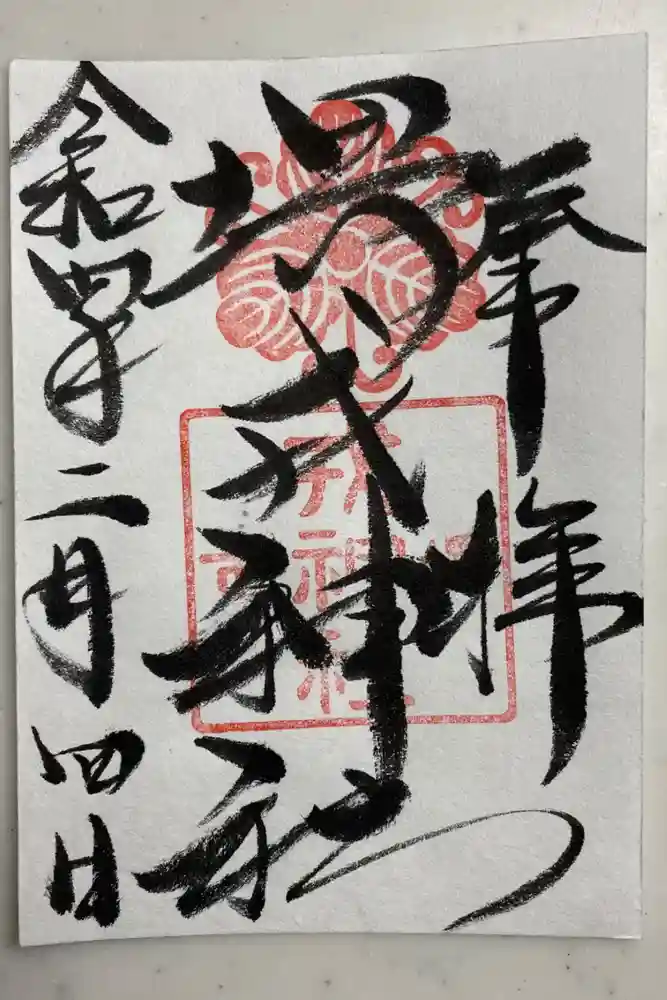 奉拝
場戎神社
令和四年二月四日